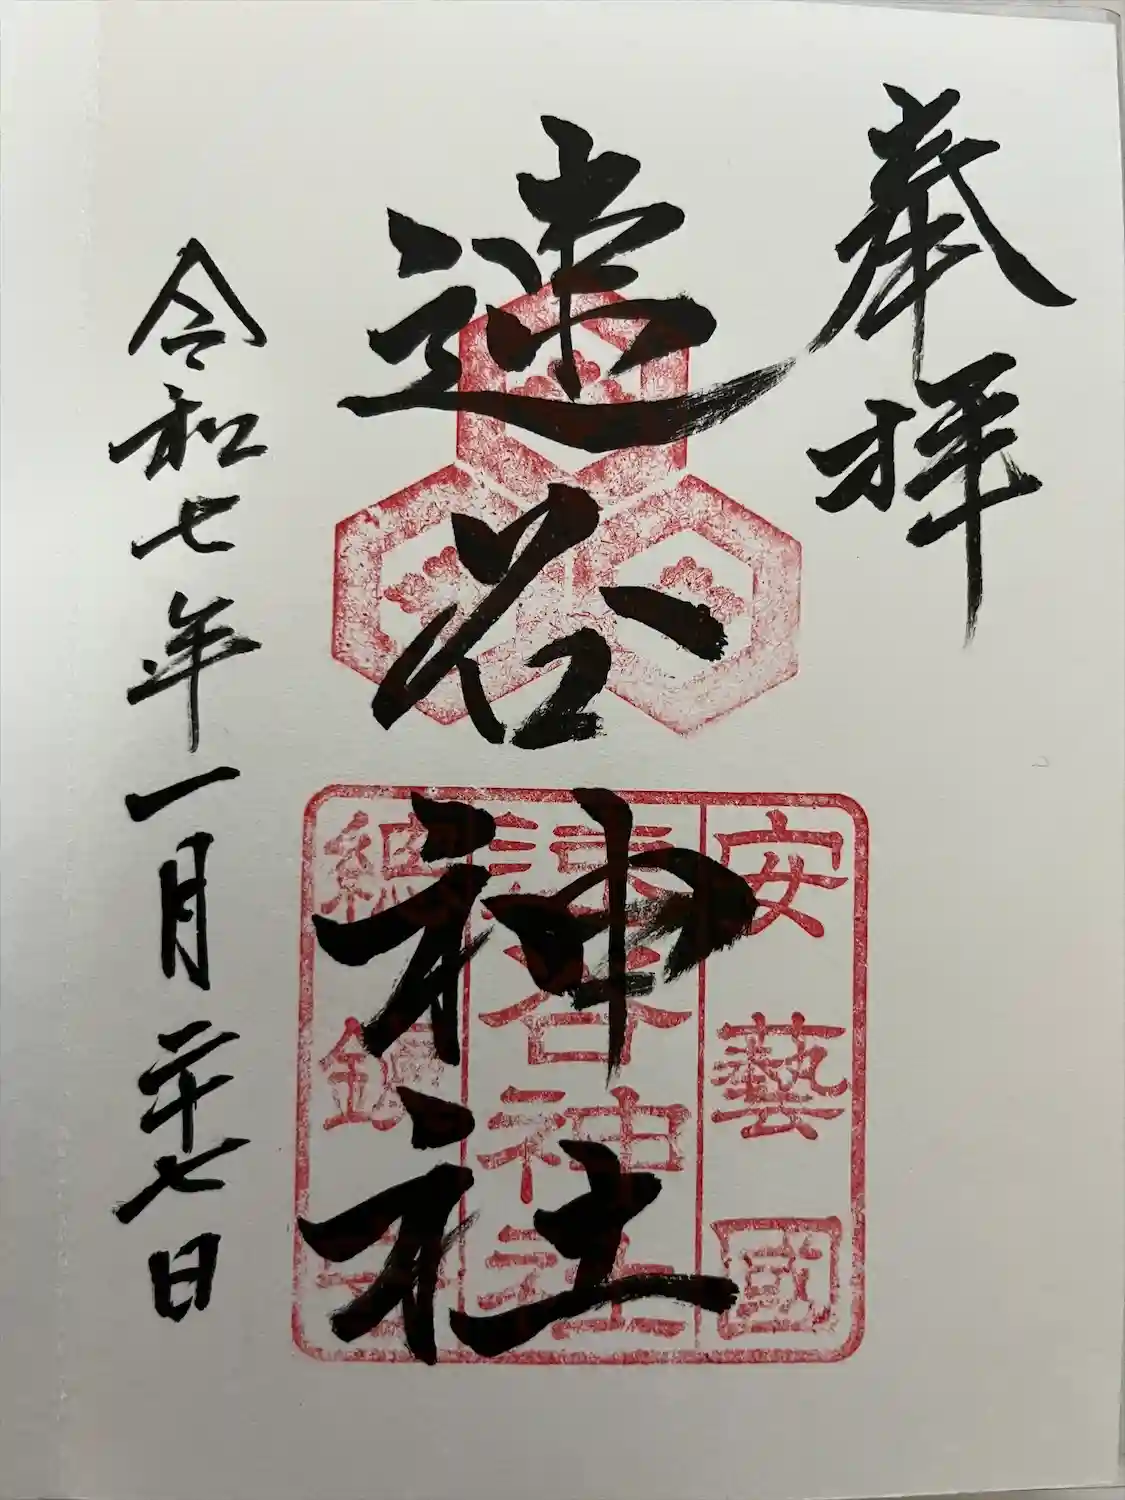 奉拝
速谷神社
令和七年一月二十七日
安藝國
速谷神社
總鎮守